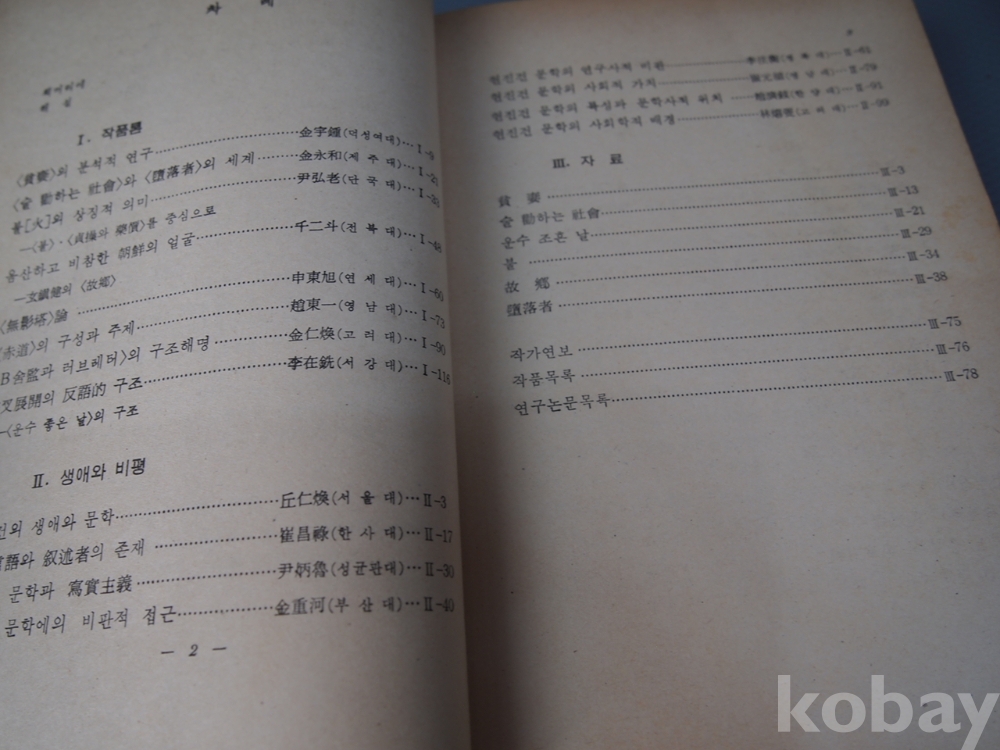 차 례
책머리에
해 설
Ⅰ. 작품론
〈貧妻〉의 분석적 연구……金宇鍾(덕성여대)…Ⅰ-9
〈술 勸하는 社會〉와 〈墮落者〉의 세계……金永和(제주대)…Ⅰ-23
불[火]의 상징적 의미……尹弘老(단국대)…Ⅰ-29
—〈불〉·〈貞操와 藥價〉를 중심으로
음산하고 비참한 朝鮮의 얼굴……千二斗(전북대)…Ⅰ-48
—玄鎭健의 〈故鄕〉
〈無影塔〉論……申東旭(연세대)…Ⅰ-60
〈赤道〉의 구성과 주제……趙東一(영남대)…Ⅰ-73
B舍監과 러브레터〉의 구조해명……金仁煥(고려대)…Ⅰ-90
展開의 反語的 구조……李在銑(서강대)…Ⅰ-116
—〈운수 좋은 날〉의 구조
Ⅱ. 생애와 비평
의 생애와 문학……丘仁煥(서울대)…Ⅱ-3
語와 叙述者의 존재……崔昌祿(한사대)…Ⅱ-17
문학과 寫實主義……尹炳魯(성균관대)…Ⅱ-30
문학에의 비판적 접근……金重河(부산대)…Ⅱ-40
— 2 —
현진건 문학의 연구사적 비판……(경북대)…Ⅱ-61
현진건 문학의 사회적 가치……(영남대)…Ⅱ-79
현진건 문학의 특성과 문학사적 위치……(한양대)…Ⅱ-91
현진건 문학의 사회학적 배경……林(고려대)…Ⅱ-99
Ⅲ. 자 료
貧 妻……Ⅲ-3
술 勸하는 社會……Ⅲ-13
운수 조흔 날……Ⅲ-21
불……Ⅲ-29
故 鄕……Ⅲ-34
墮落者……Ⅲ-38
작가연보……Ⅲ-75
작품목록……Ⅲ-76
연구논문목록……Ⅲ-78
kobay